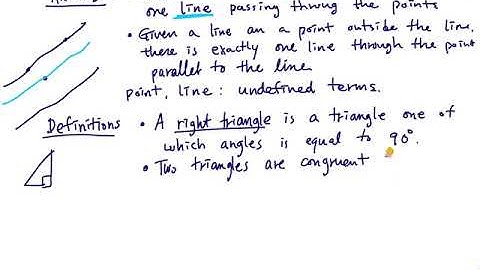 one line passing throug the points
• Given a line an a point outside the line,
there is exactly one line through the point
parallel to the line
point, line: undefined terms.
Definitions • A right triangle is a triangle one of
which angles is equal to 90°.
• Two triangles are congruent